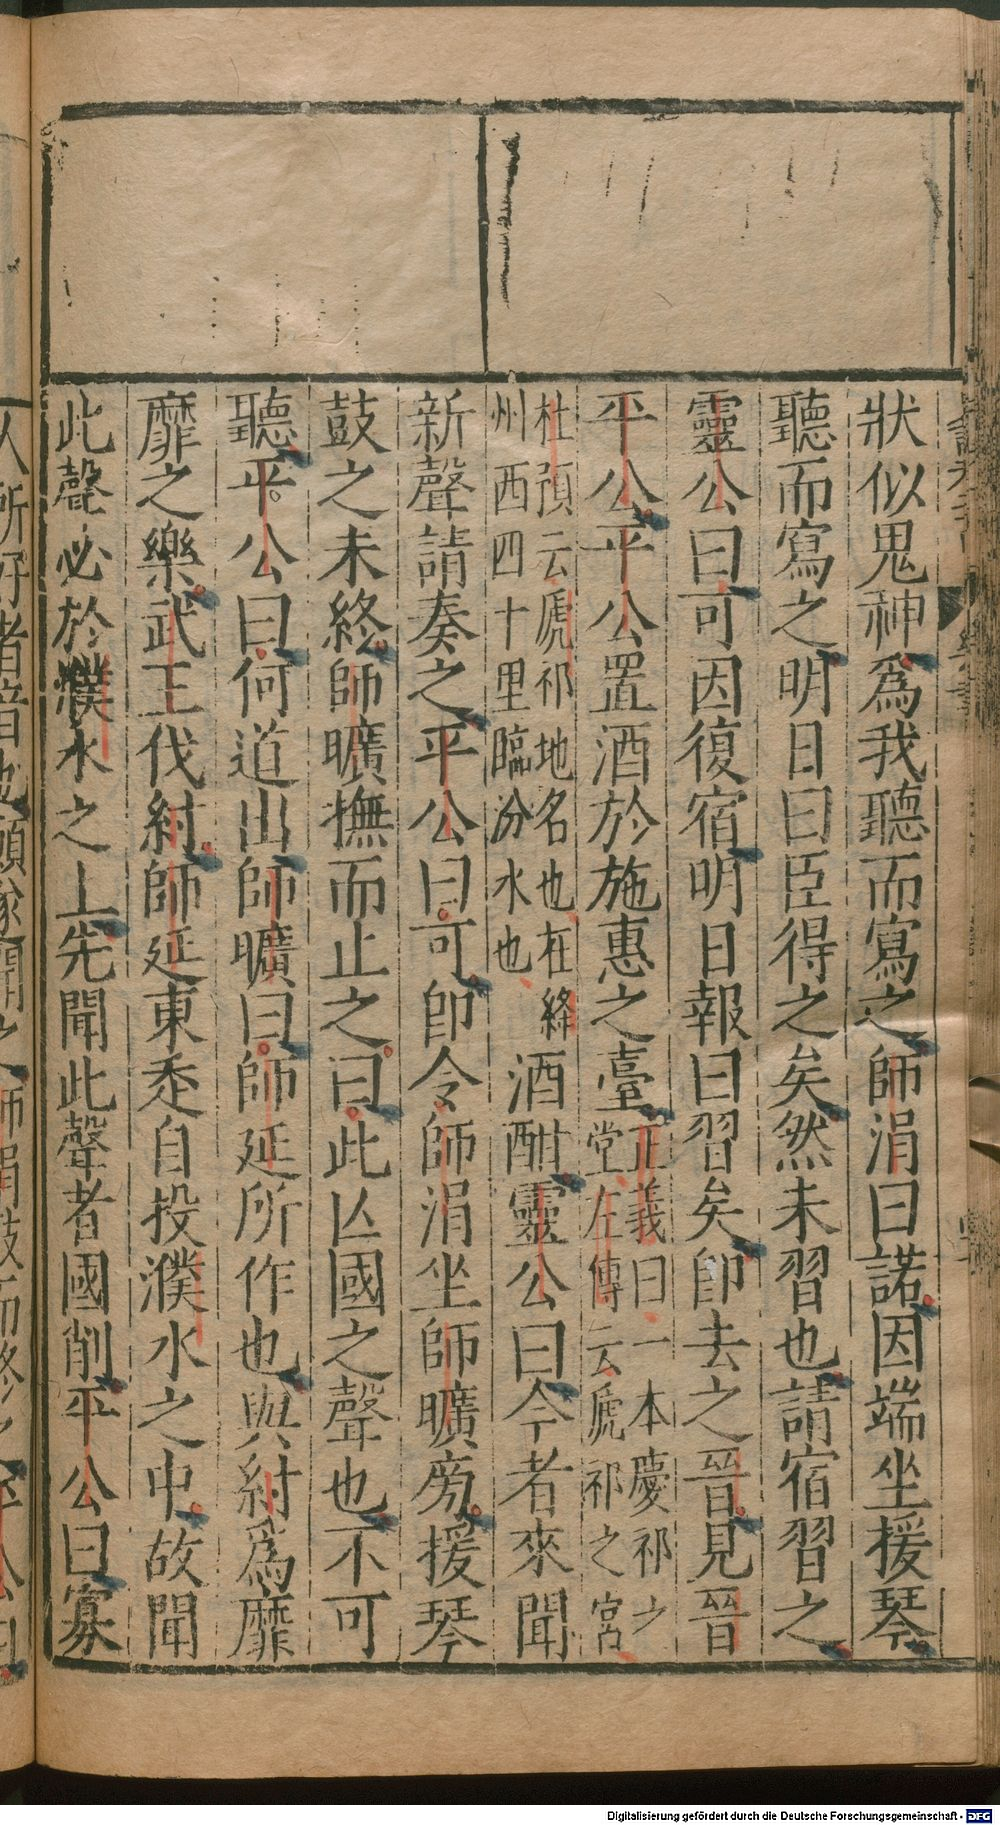 狀似鬼神爲我聽而寫之師涓曰諾因端坐援琴
聽而寫之明日曰臣得之矣然未習也請宿習之
靈公曰可因復宿明日報曰習矣卽去之晉見晉
平公平公置酒於施惠之臺正義曰一本慶祁之堂左傳云虒祁之宮
杜預云虒祁地名也在絳州西四十里臨汾水也酒酣靈公曰今者來聞
新聲請奏之平公曰可卽令師涓坐師曠旁援琴
鼓之未終師曠撫而止之曰此亾國之聲也不可
聽平公曰何道出師曠曰師延所作也與紂爲靡
靡之樂武王伐紂師延東走自投濮水之中故聞
此聲必於濮水之上先聞此聲者國削平公曰寡
Digitalisierung gefördert durch die Deutsche Forschungsgemeinschaft - DFG